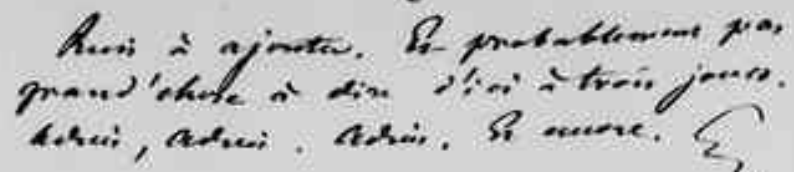 Rien à ajouter. Et probablement pas
grand'chose à dire d'ici à trois jours.
Adieu, adieu. Adieu. Et encore.